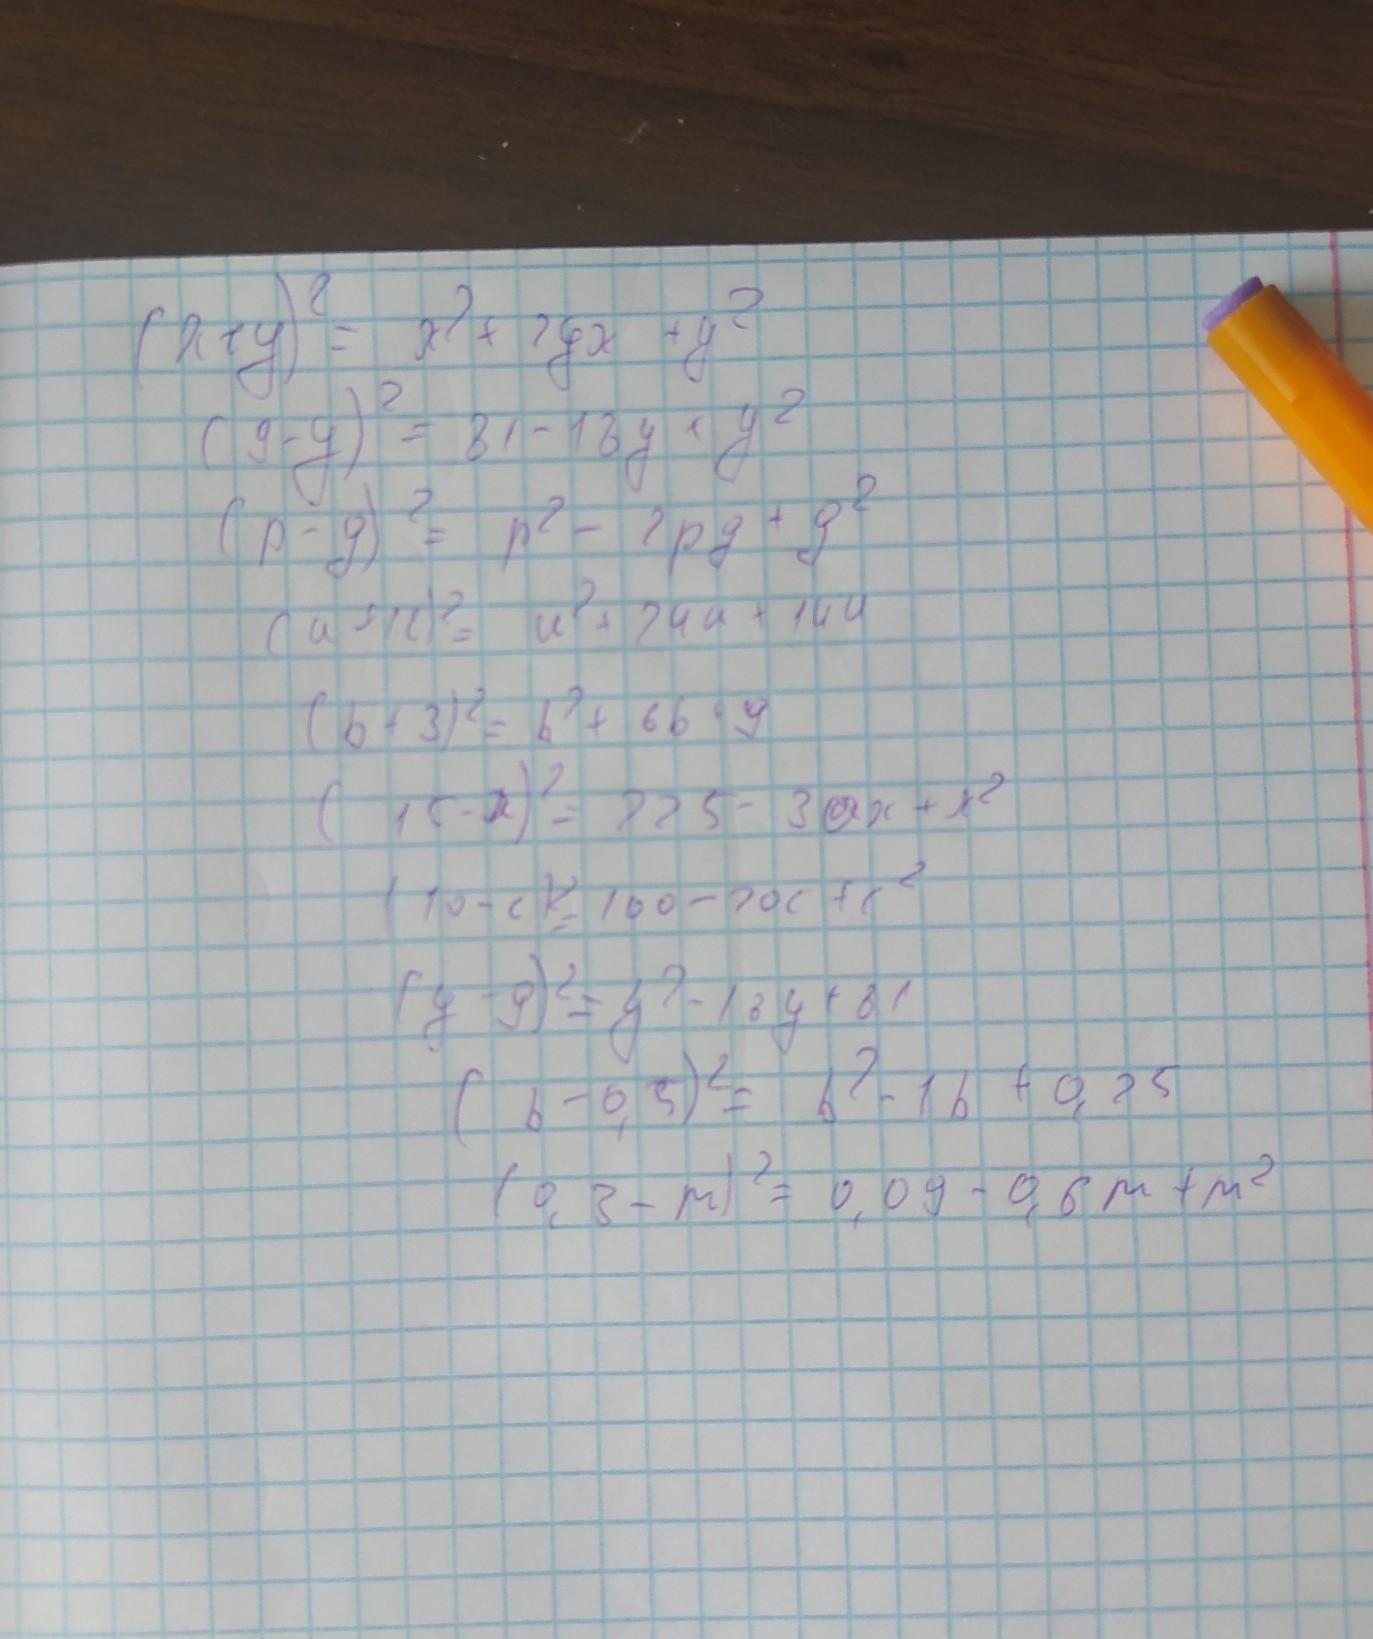 (x+y)² = x² + 2yx + y²
(9-y)² = 81 - 18y + y²
(p-q)² = p² - 2pq + q²
(a+12)² = a² + 24a + 144
(b+3)² = b² + 6b + 9
(15-x)² = 225 - 30x + x²
(10-c)² = 100 - 20c + c²
(y-9)² = y² - 18y + 81
(b-0,5)² = b² - 1b + 0,25
(0,3-m)² = 0,09 - 0,6m + m²